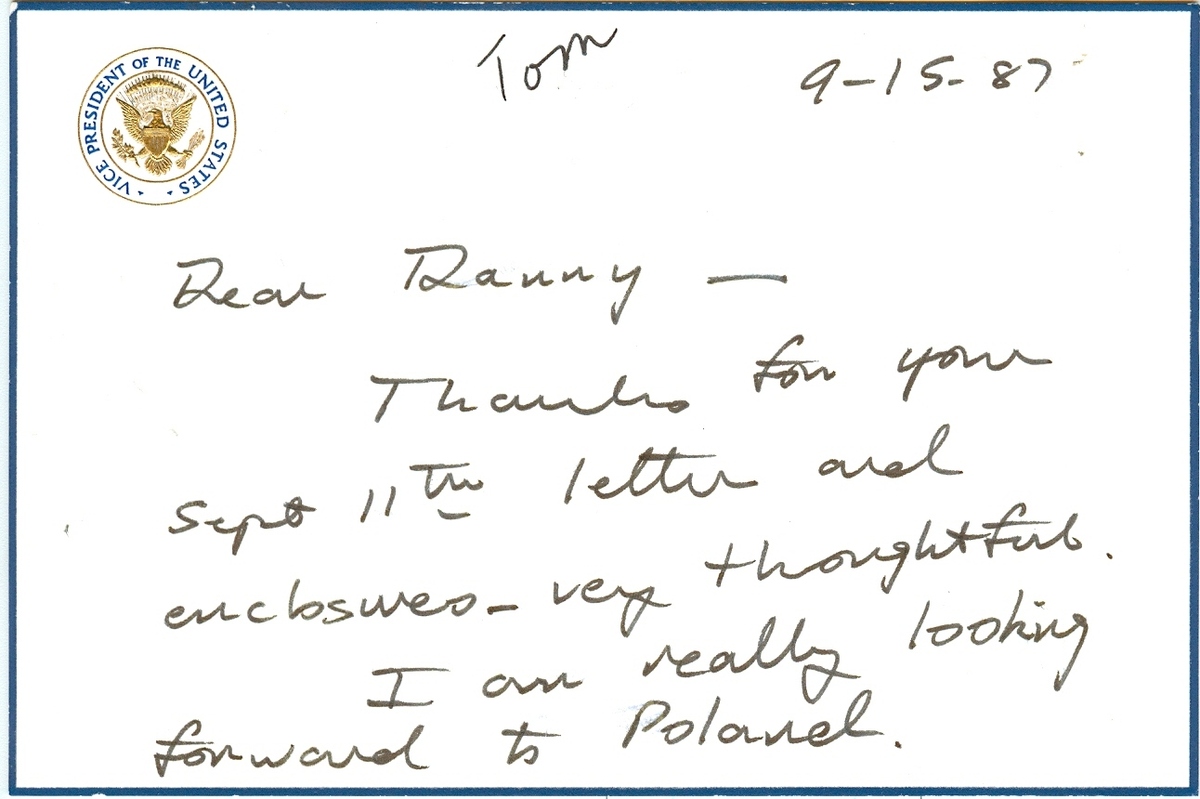 VICE PRESIDENT OF THE UNITED STATES
Tom
9-15-87
Dear Danny —
Thanks for your
Sept 11th letter and
enclosures - very thoughtful.
I am really looking
forward to Poland.